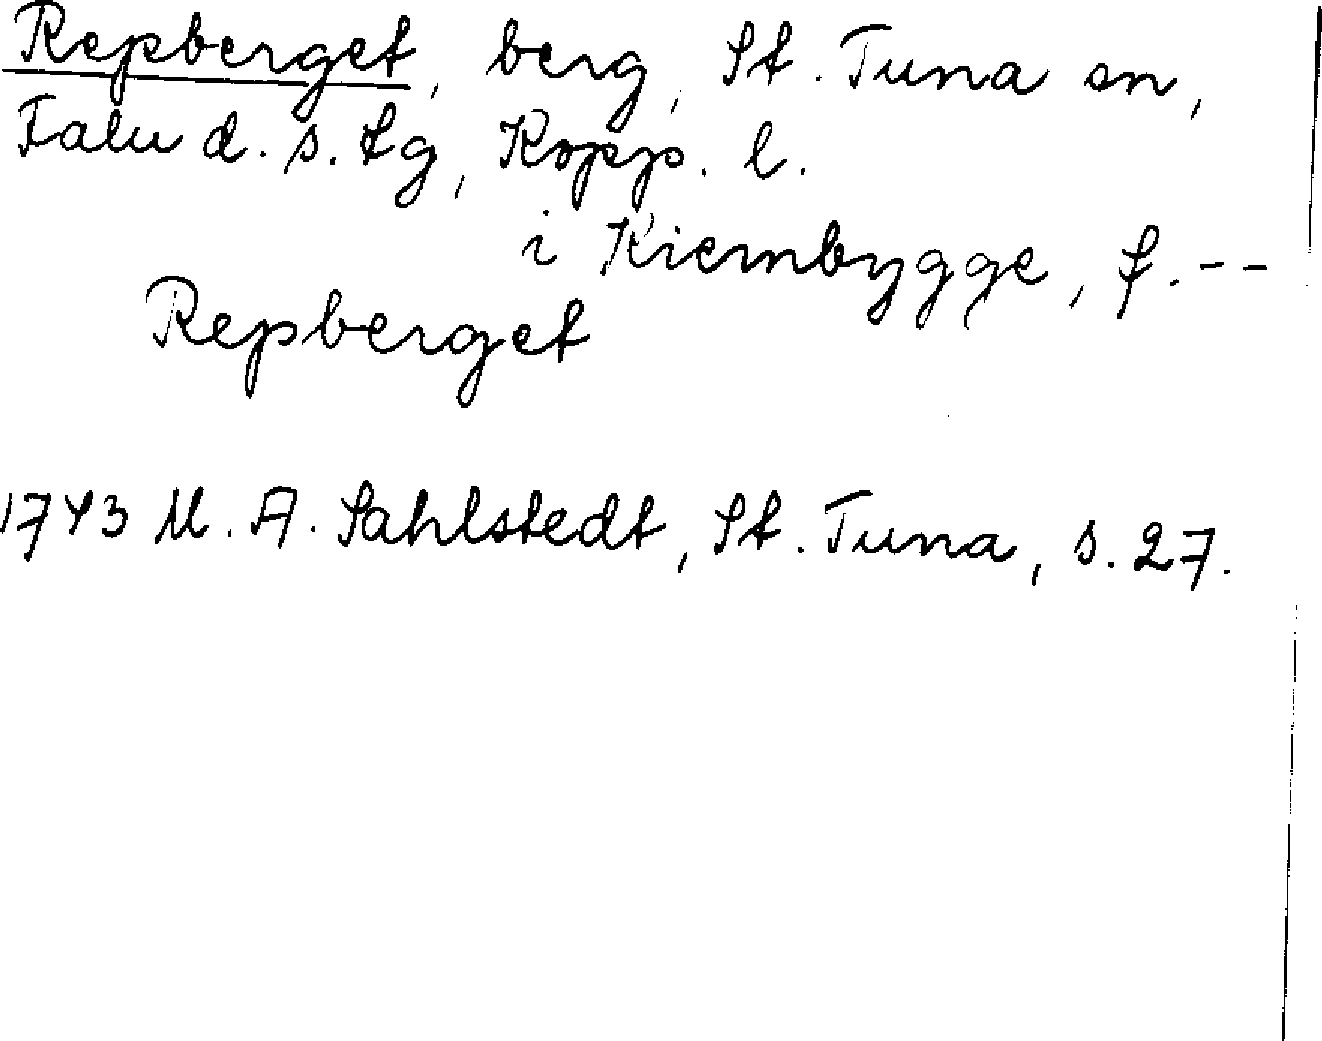 Repberget, berg, St. Tuna sn,
Falu d. s. tg, Kopp. l.
i Kiernbygge, f. --
Repberget
1743 M. A. Sahlstedt, St. Tuna, s. 27.